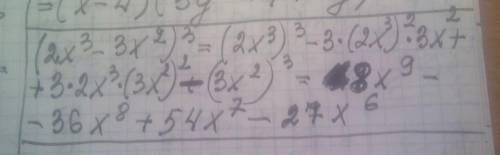 =(x-4)(3y
(2x³-3x²)³=(2x³)³-3·(2x³)²·3x²+
+3·2x³·(3x²)²-(3x²)³= 8x⁹-
-36x⁸+54x⁷-27x⁶